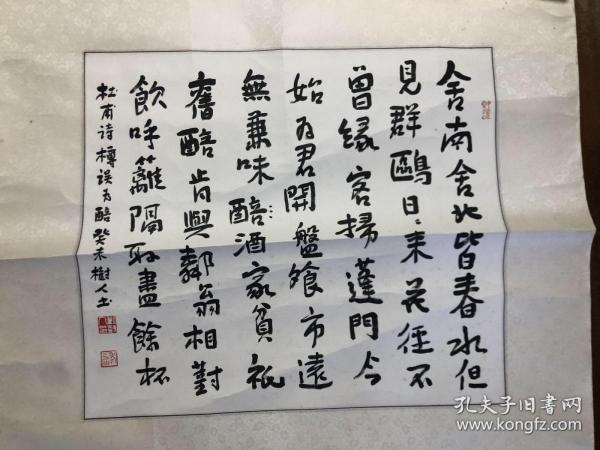 舍南舍北皆春水但
見群鷗日日来花徑不
曾缘客掃蓬門今
始为君開盤飧市遠
無兼味醅酒家貧衹
舊醅肯與鄰翁相對
飲呼籬隔取盡餘杯
杜甫诗樽误为醅癸未樹人书
孔夫子旧书网
www.kongfz.com